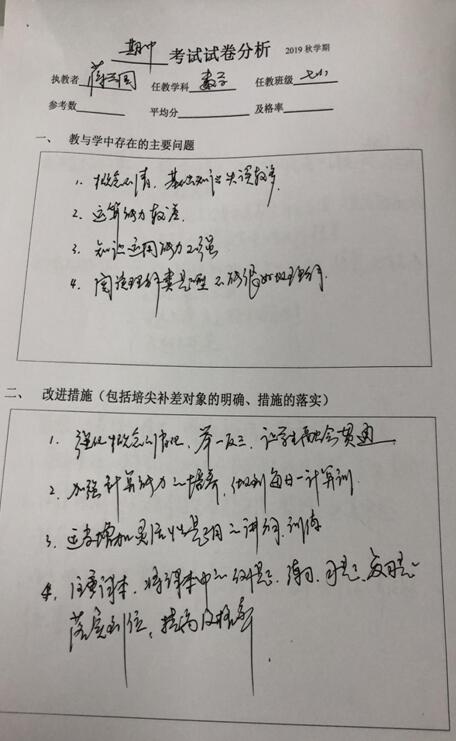 期中 考试试卷分析 2019 秋学期
执教者 蒋 国 任教学科 数学 任教班级 七(1)
参考数 平均分 及格率
一、 教与学中存在的主要问题
1. 概念不清，基础知识失误较多.
2. 运算能力较差.
3. 知识运用能力不强
4. 阅读理解类题型不能很好地理解.
二、 改进措施（包括培尖补差对象的明确、措施的落实）
1. 强化概念的情况，举一反三，让学生融会贯通
2. 加强计算能力的培养，做到每日一计算训
3. 适当增加灵活性题目的讲解，训练
4. 注重课本，将课本中的例题、练习、习题、复习题
落实到位，提高及格率.